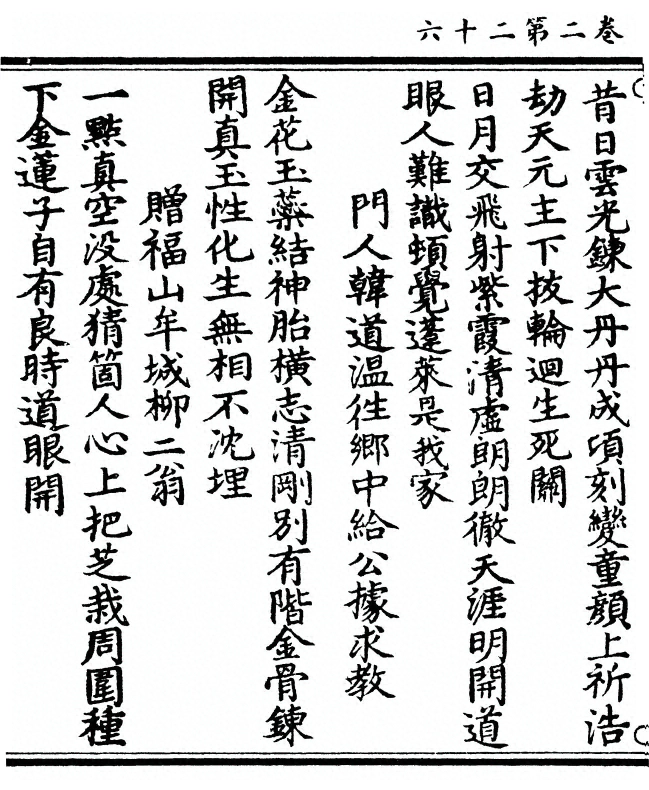 卷二第二十六
昔日雲光鍊大丹丹成頃刻變童顏上祈浩
劫天元主下拔輪迴生死關
日月交飛射紫霞清虛朗朗徹天涯明開道
眼人難識頓覺蓬萊是我家
門人韓道溫往鄉中給公據求教
金花玉蘂結神胎橫志清剛別有階金骨鍊
開真玉性化生無相不沈埋
贈福山牟城柳二翁
一點真空没處猜箇人心上把芝栽周圍種
下金蓮子自有良時道眼開